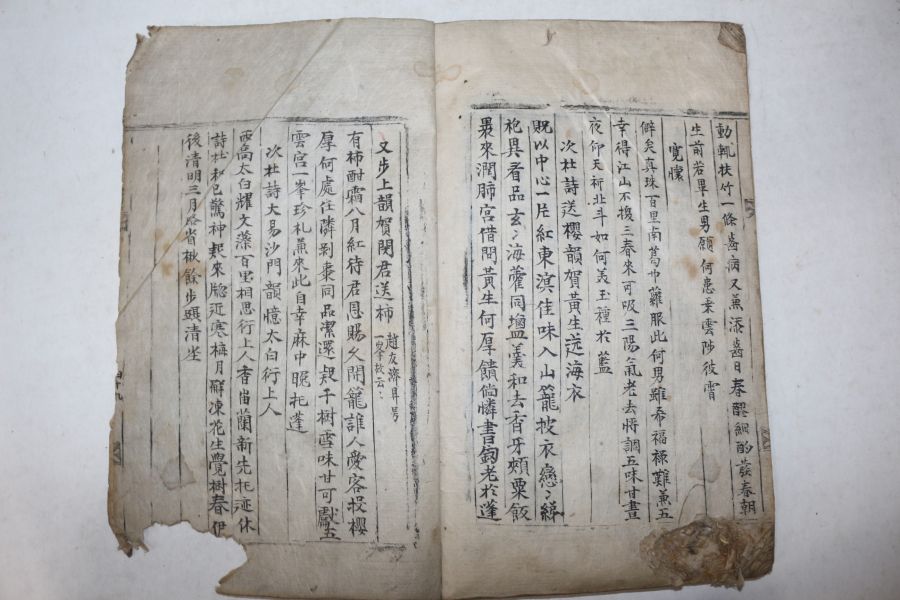 動輒扶竹一條齒病又兼添齒日春醪細酌茲春朝
生前若畢生男願何患乗雲陟彼霄
寛懷
僻矣真珠百里南葛巾蘿服此何男雖希福祿難兼五
幸得江山不換三春來可吸三陽氣老去將調五味甘晝
夜仰天祈北斗如何美玉種於藍
次杜詩送櫻韻賀黃生送海衣
貺以中心一片紅東溟佳味入山籠披衣戀〻綈
袍具看品玄〻海藿同塩羙和去香牙頰粟飯
最來潤肺宮借問黃生何厚饋偏憐書劔老於蓬
又步上韻賀閔君送柿
趙友濟昇号
一峯故云〻
有柿酎霜八月紅待君恩賜久開籠誰人愛客投櫻
厚何處任隣剝棗同品潔還疑千樹雪味甘可獻五
雲宮一峯珍札兼來此自幸麻中晼托蓬
次杜詩大易沙門韻憶太白行上人
西高太白耀文藻百里相思行上人香畄蘭新先托迹休
詩杜和已驚神起來牕近寒梅月解凍花生覺樹春伊
後清明三月路省楸餘步顕清坐